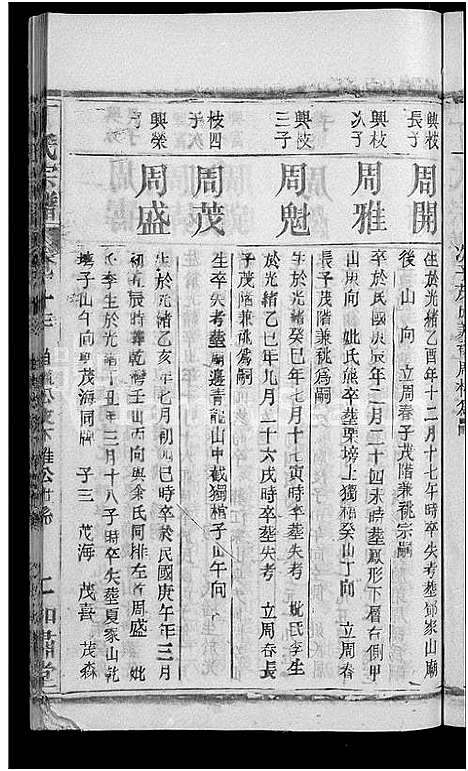 興枝
長子
周開
生於光緒乙酉年十二月十七午時卒失考塟鄧家山廟
後 山 向 立周春子茂階兼祧宗嗣
興枝
次子
周雅
卒於民國庚辰年二月二十四未時塟鳳形下層右側甲
山庚向 妣氏熊卒塟栗塝上獨槥癸山丁向 立周春
長子茂階兼祧為嗣
興枝
三子
周魁
生於光緒癸巳年七月十七寅時卒塟失考 妣氏李生
於光緒乙巳年九月二十六戌時卒塟失考 立周春長
子茂階兼祧為嗣
枝四
子
周茂
生卒失考塟廟邊青龍山中截獨槥子山午向
興榮
子
周盛
生於光緒乙亥年七月初 巳時卒於民國庚午年三月
初 辰時塟乾灣壬山丙向與余氏同排左 周盛 妣
李生於光緒 丑年三月十八子時卒失塟夏家山乾
子山午向與茂海同牌 子三 茂海 茂喜 茂森
氏宗譜
肅堂